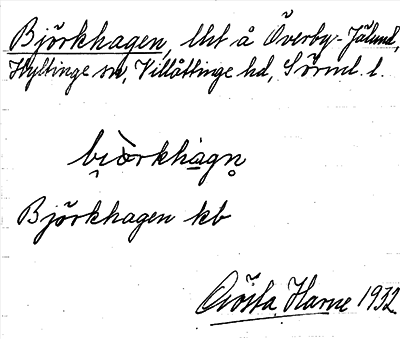 Björkhagen, lht å Överby-Jälund,
Hyltinge sn, Villåttinge hd, Sörml. l.
bi̯ò̱rkhagn̥
Björkhagen kb
Gösta Harne 1932